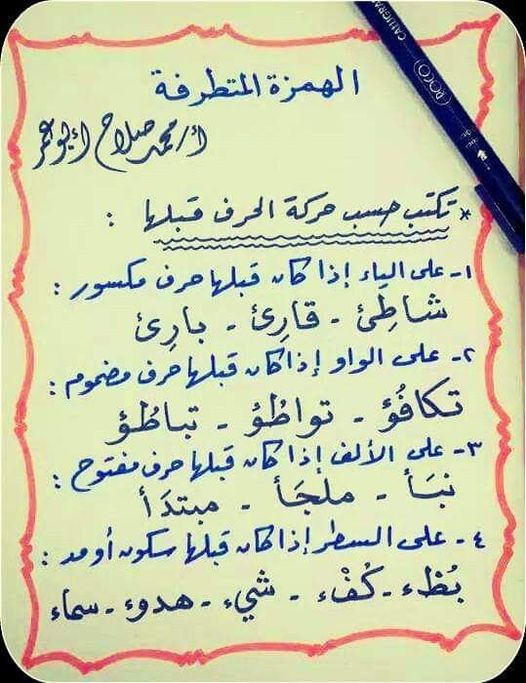 الهمزة المتطرفة
أ/ محمد صلاح أبو عمر
* تكتب حسب حركة الحرف قبلها :
١- على الياء إذا كان قبلها حرف مكسور :
شاطِئ - قارِئ - بارِئ
٢- على الواو إذا كان قبلها حرف مضموم :
تكافُؤ - تواطُؤ - تباطُؤ
٣- على الألف إذا كان قبلها حرف مفتوح :
نبَأ - ملجَأ - مبتدَأ
٤- على السطر إذا كان قبلها سكون أو مد :
بُطْء - كُفْء - شيء - هدوء - سماء
ROCO